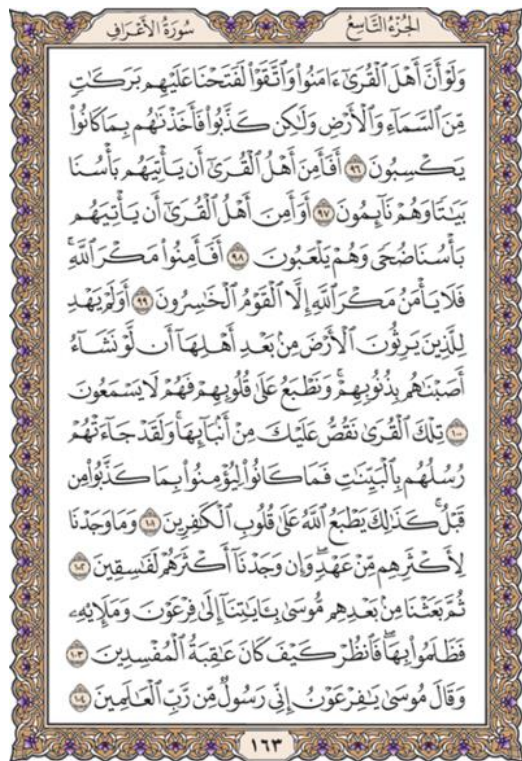 الجزء التاسع سورة الأعراف
وَلَوۡ أَنَّ أَهۡلَ ٱلۡقُرَىٰٓ ءَامَنُواْ وَٱتَّقَوۡاْ لَفَتَحۡنَا عَلَيۡهِم بَرَكَٰتٖ
مِّنَ ٱلسَّمَآءِ وَٱلۡأَرۡضِ وَلَٰكِن كَذَّبُواْ فَأَخَذۡنَٰهُم بِمَا كَانُواْ
يَكۡسِبُونَ ٩٦ أَفَأَمِنَ أَهۡلُ ٱلۡقُرَىٰٓ أَن يَأۡتِيَهُم بَأۡسُنَا
بَيَٰتٗا وَهُمۡ نَآئِمُونَ ٩٧ أَوَأَمِنَ أَهۡلُ ٱلۡقُرَىٰٓ أَن يَأۡتِيَهُم
بَأۡسُنَا ضُحٗى وَهُمۡ يَلۡعَبُونَ ٩٨ أَفَأَمِنُواْ مَكۡرَ ٱللَّهِۚ
فَلَا يَأۡمَنُ مَكۡرَ ٱللَّهِ إِلَّا ٱلۡقَوۡمُ ٱلۡخَٰسِرُونَ ٩٩ أَوَلَمۡ يَهۡدِ
لِلَّذِينَ يَرِثُونَ ٱلۡأَرۡضَ مِنۢ بَعۡدِ أَهۡلِهَآ أَن لَّوۡ نَشَآءُ
أَصَبۡنَٰهُم بِذُنُوبِهِمۡۚ وَنَطۡبَعُ عَلَىٰ قُلُوبِهِمۡ فَهُمۡ لَا يَسۡمَعُونَ
١٠٠ تِلۡكَ ٱلۡقُرَىٰ نَقُصُّ عَلَيۡكَ مِنۡ أَنۢبَآئِهَاۚ وَلَقَدۡ جَآءَتۡهُمۡ
رُسُلُهُم بِٱلۡبَيِّنَٰتِ فَمَا كَانُواْ لِيُؤۡمِنُواْ بِمَا كَذَّبُواْ مِن
قَبۡلُۚ كَذَٰلِكَ يَطۡبَعُ ٱللَّهُ عَلَىٰ قُلُوبِ ٱلۡكَٰفِرِينَ ١٠١ وَمَا وَجَدۡنَا
لِأَكۡثَرِهِم مِّنۡ عَهۡدٖۖ وَإِن وَجَدۡنَآ أَكۡثَرَهُمۡ لَفَٰسِقِينَ ١٠٢
ثُمَّ بَعَثۡنَا مِنۢ بَعۡدِهِم مُّوسَىٰ بِـَٔايَٰتِنَآ إِلَىٰ فِرۡعَوۡنَ وَمَلَإِيْهِۦ
فَظَلَمُواْ بِهَاۖ فَٱنظُرۡ كَيۡفَ كَانَ عَٰقِبَةُ ٱلۡمُفۡسِدِينَ ١٠٣
وَقَالَ مُوسَىٰ يَٰفِرۡعَوۡنُ إِنِّي رَسُولٞ مِّن رَّبِّ ٱلۡعَٰلَمِينَ ١٠٤
١٦٣